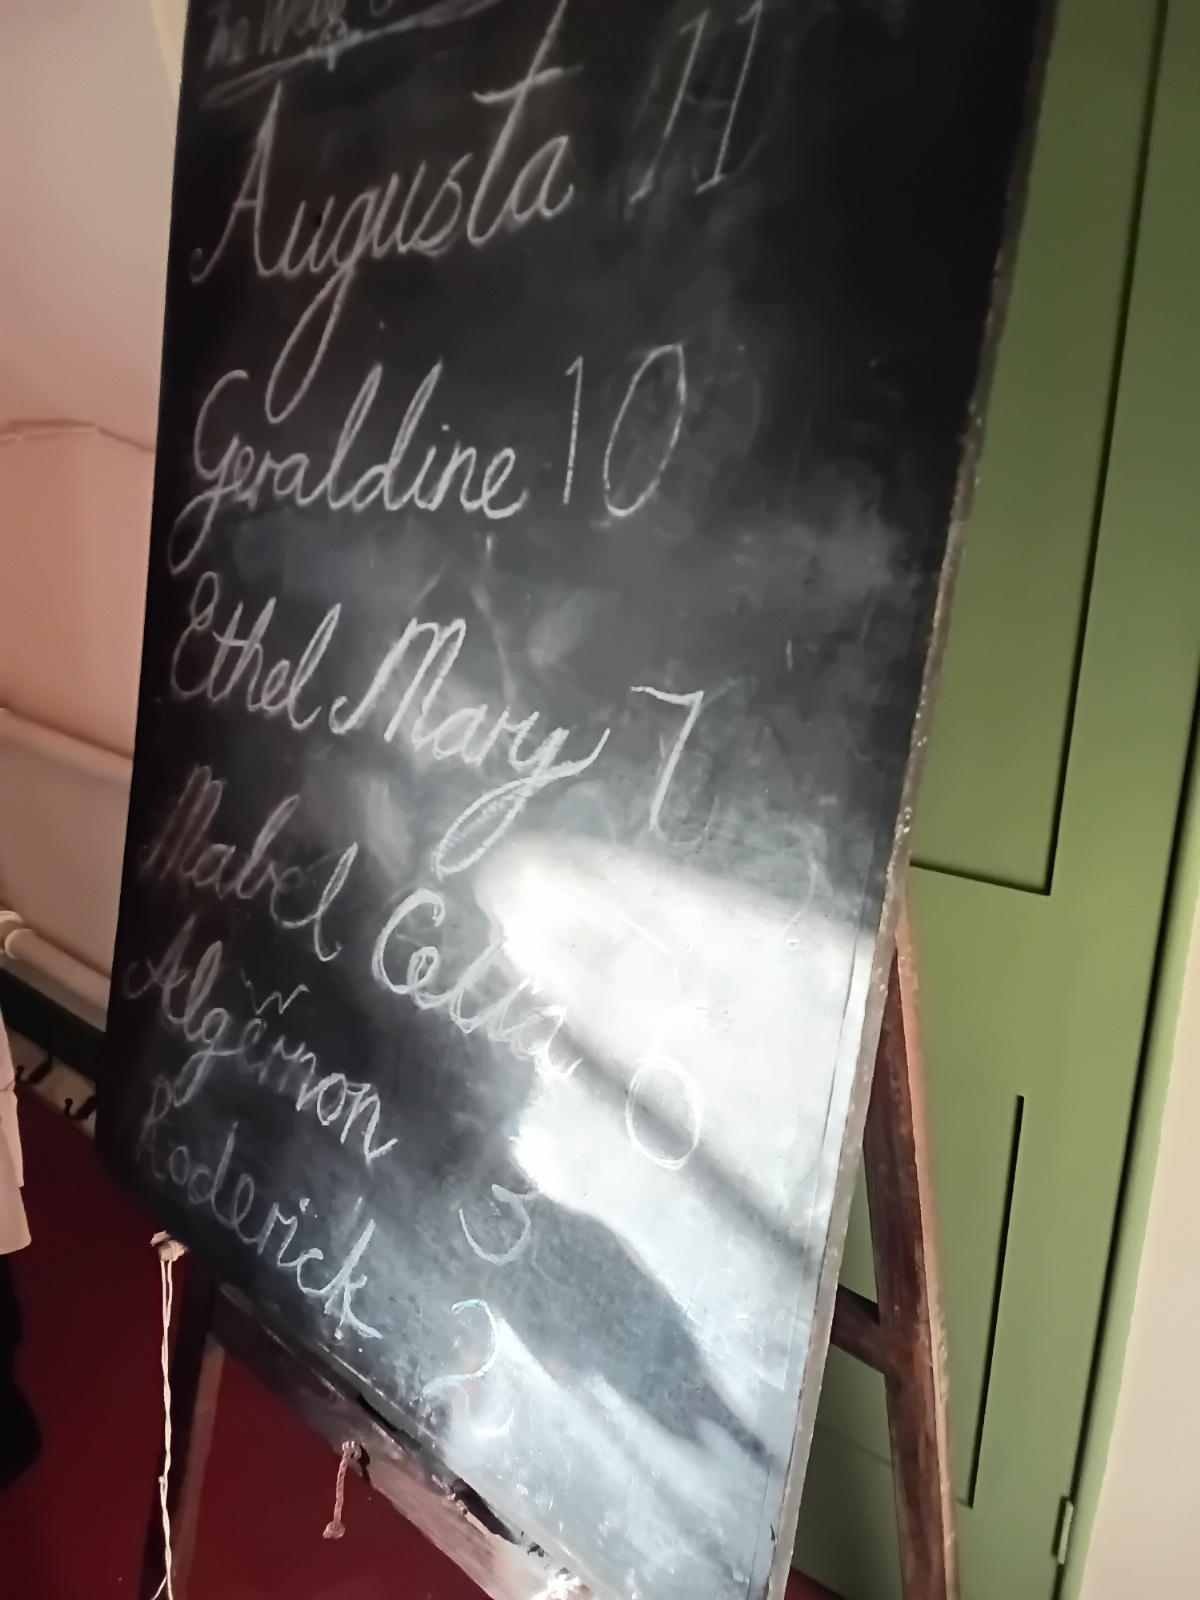 The
Augusta 11
Geraldine 10
Ethel Mary 7
Mabel Celia 6
Algernon 3
Roderick 2